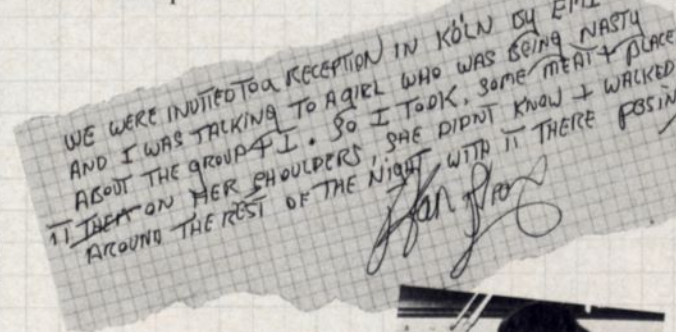 WE WERE INVITED TO A RECEPTION IN KÖLN BY EMI
AND I WAS TALKING TO A GIRL WHO WAS BEING NASTY
ABOUT THE GROUP + I. SO I TOOK, SOME MEAT + PLACE
IT ON HER SHOULDERS, SHE DIDNT KNOW + WALKED
AROUND THE REST OF THE NIGHT WITH IT THERE